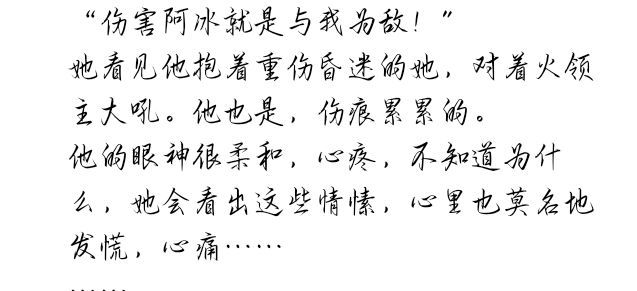 “伤害阿冰就是与我为敌！”
她看见他抱着重伤昏迷的她，对着火领
主大吼。他也是，伤痕累累的。
他的眼神很柔和，心疼，不知道为什
么，她会看出这些情愫，心里也莫名地
发慌，心痛……
……